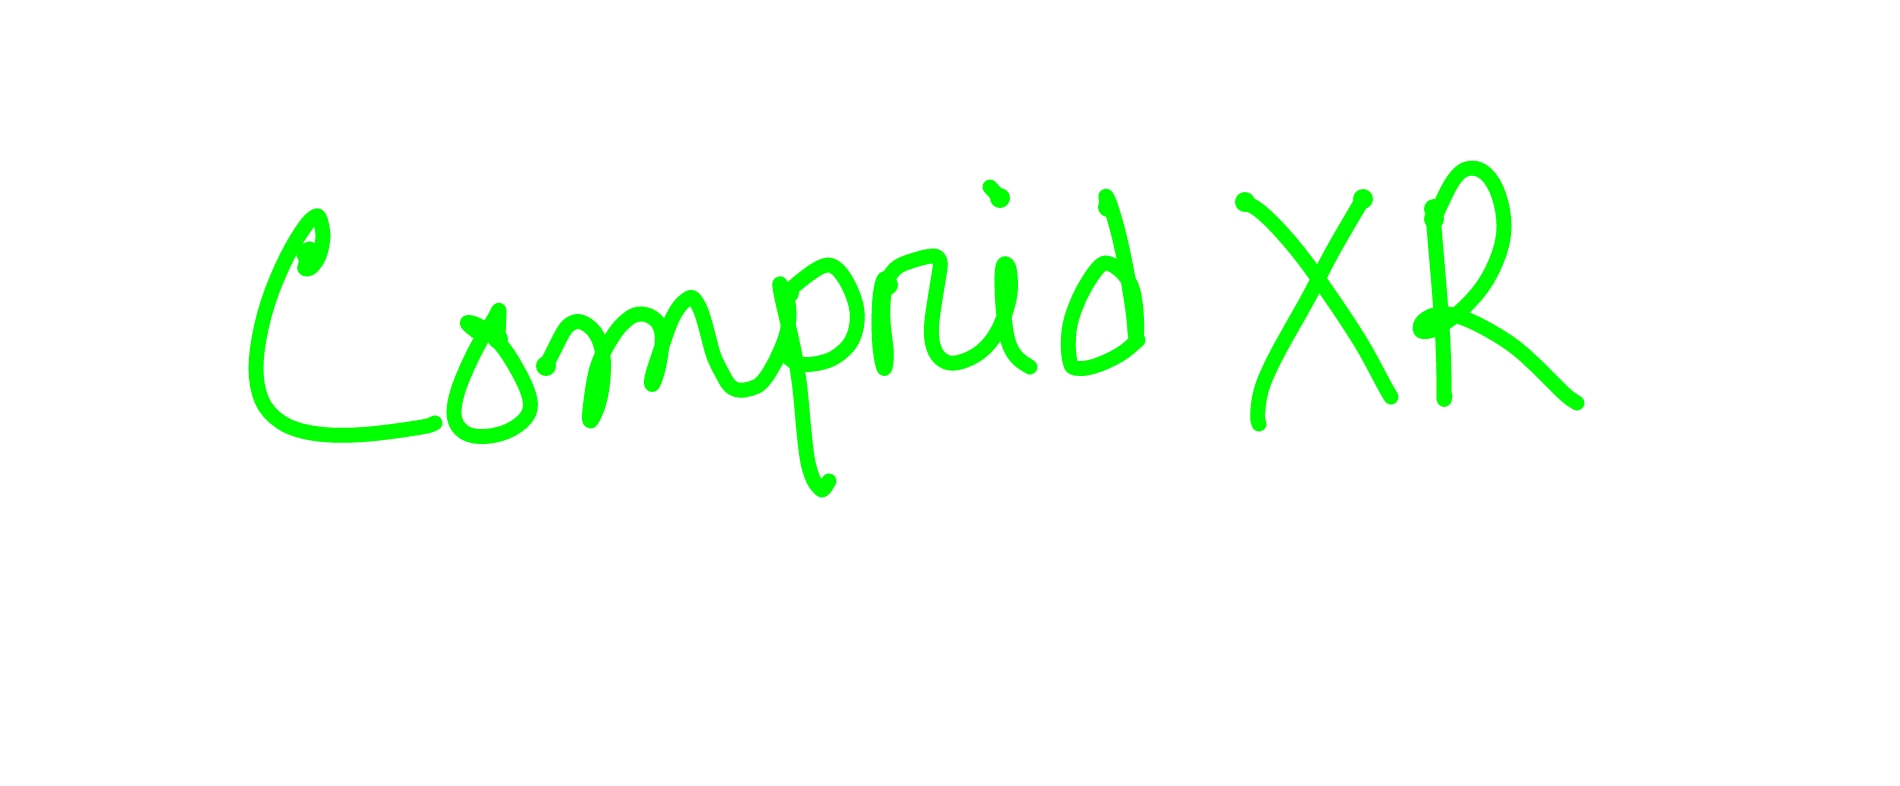 Comprid XR